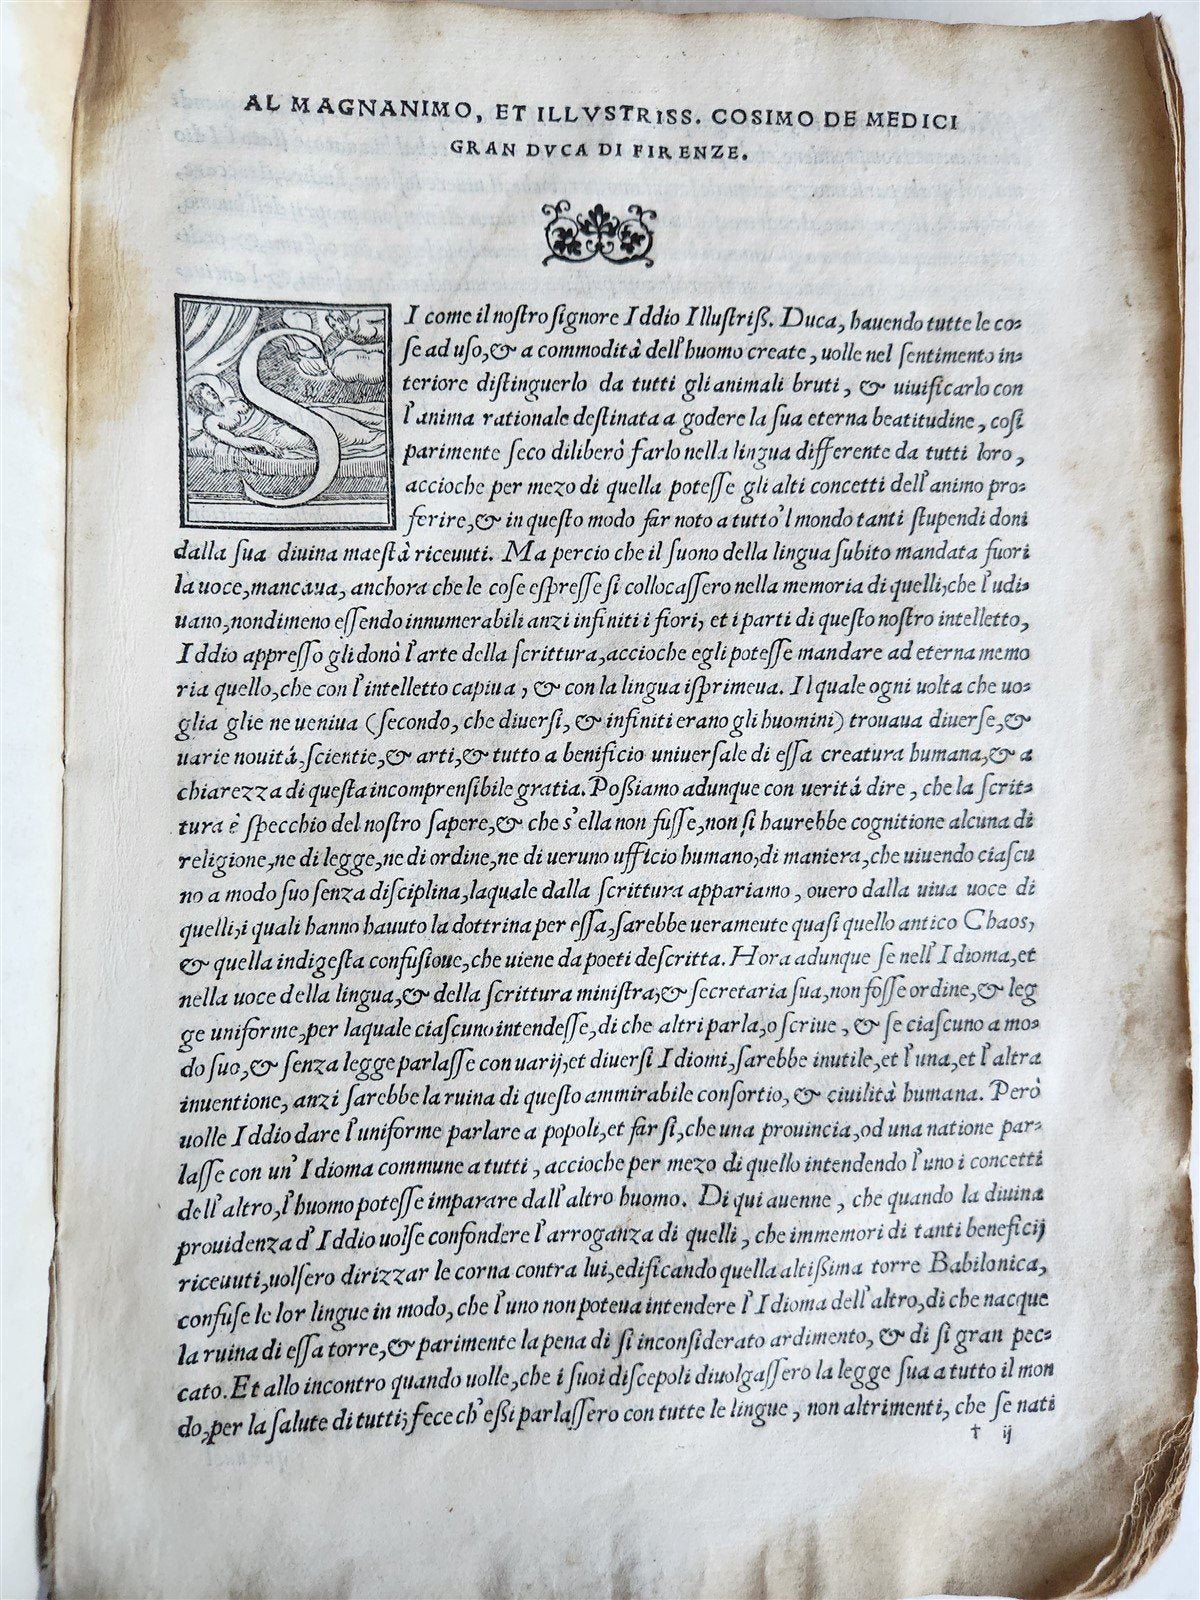 AL MAGNANIMO, ET ILLVSTRISS. COSIMO DE MEDICI
GRAN DVCA DI FIRENZE.
SI come il nostro signore Iddio Illustriß. Duca, hauendo tutte le co-
se ad uso, & a commodità dell'huomo create, uolle nel sentimento in-
teriore distinguerlo da tutti gli animali bruti, & uiuificarlo con
l'anima rationale destinata a godere la sua eterna beatitudine, cosi
parimente seco diliberò farlo nella lingua differente da tutti loro,
accioche per mezo di quella potesse gli alti concetti dell'animo pro-
ferire, & in questo modo far noto a tutto'l mondo tanti stupendi doni
dalla sua diuina maestà riceuuti. Ma percio che il suono della lingua subito mandata fuori
la uoce, mancaua, anchora che le cose espresse si collocassero nella memoria di quelli, che l'udi-
uano, nondimeno essendo innumerabili anzi infiniti i fiori, et i parti di questo nostro intelletto,
Iddio appresso gli donò l'arte della scrittura, accioche egli potesse mandare ad eterna memo
ria quello, che con l'intelletto capiua, & con la lingua isprimeua. Il quale ogni uolta che uo-
glia glie ne ueniua (secondo, che diuersi, & infiniti erano gli huomini) trouaua diuerse, &
uarie nouitá, scientie, & arti, & tutto a benificio uniuersale di essa creatura humana, & a
chiarezza di questa incomprensibile gratia. Poßiamo adunque con ueritá dire, che la scrit-
tura è specchio del nostro sapere, & che s'ella non fusse, non si haurebbe cognitione alcuna di
religione, ne di legge, ne di ordine, ne di ueruno ufficio humano, di maniera, che uiuendo ciascu
no a modo suo senza disciplina, laquale dalla scrittura appariamo, ouero dalla uiua uoce di
quelli, i quali hanno hauuto la dottrina per essa, sarebbe ueramente quasi quello antico Chaos,
& quella indigesta confusioue, che uiene da poeti descritta. Hora adunque se nell'Idioma, et
nella uoce della lingua, & della scrittura ministra, & secretaria sua, non fosse ordine, & leg
ge uniforme, per laquale ciascuno intendesse, di che altri parla, o scriue, & se ciascuno a mo-
do suo, & senza legge parlasse con uarij, et diuersi Idiomi, sarebbe inutile, et l'una, et l'altra
inuentione, anzi sarebbe la ruina di questo ammirabile consortio, & ciuilità humana. Però
uolle Iddio dare l'uniforme parlare a popoli, et far si, che una prouincia, od una natione par-
lasse con un'Idioma commune a tutti, accioche per mezo di quello intendendo l'uno i concetti
dell'altro, l'huomo potesse imparare dall'altro huomo. Di qui auenne, che quando la diuina
prouidenza d'Iddio uolse confondere l'arroganza di quelli, che immemori di tanti beneficij
riceuuti, uolsero dirizzar le corna contra lui, edificando quella altißima torre Babilonica,
confuse le lor lingue in modo, che l'uno non poteua intendere l'Idioma dell'altro, di che nacque
la ruina di essa torre, & parimente la pena di si inconsiderato ardimento, & di si gran pec-
cato. Et allo incontro quando uolle, che i suoi discepoli diuolgassero la legge sua a tutto il mon
do, per la salute di tutti; fece ch'eßi parlassero con tutte le lingue, non altrimenti, che se nati
† ij